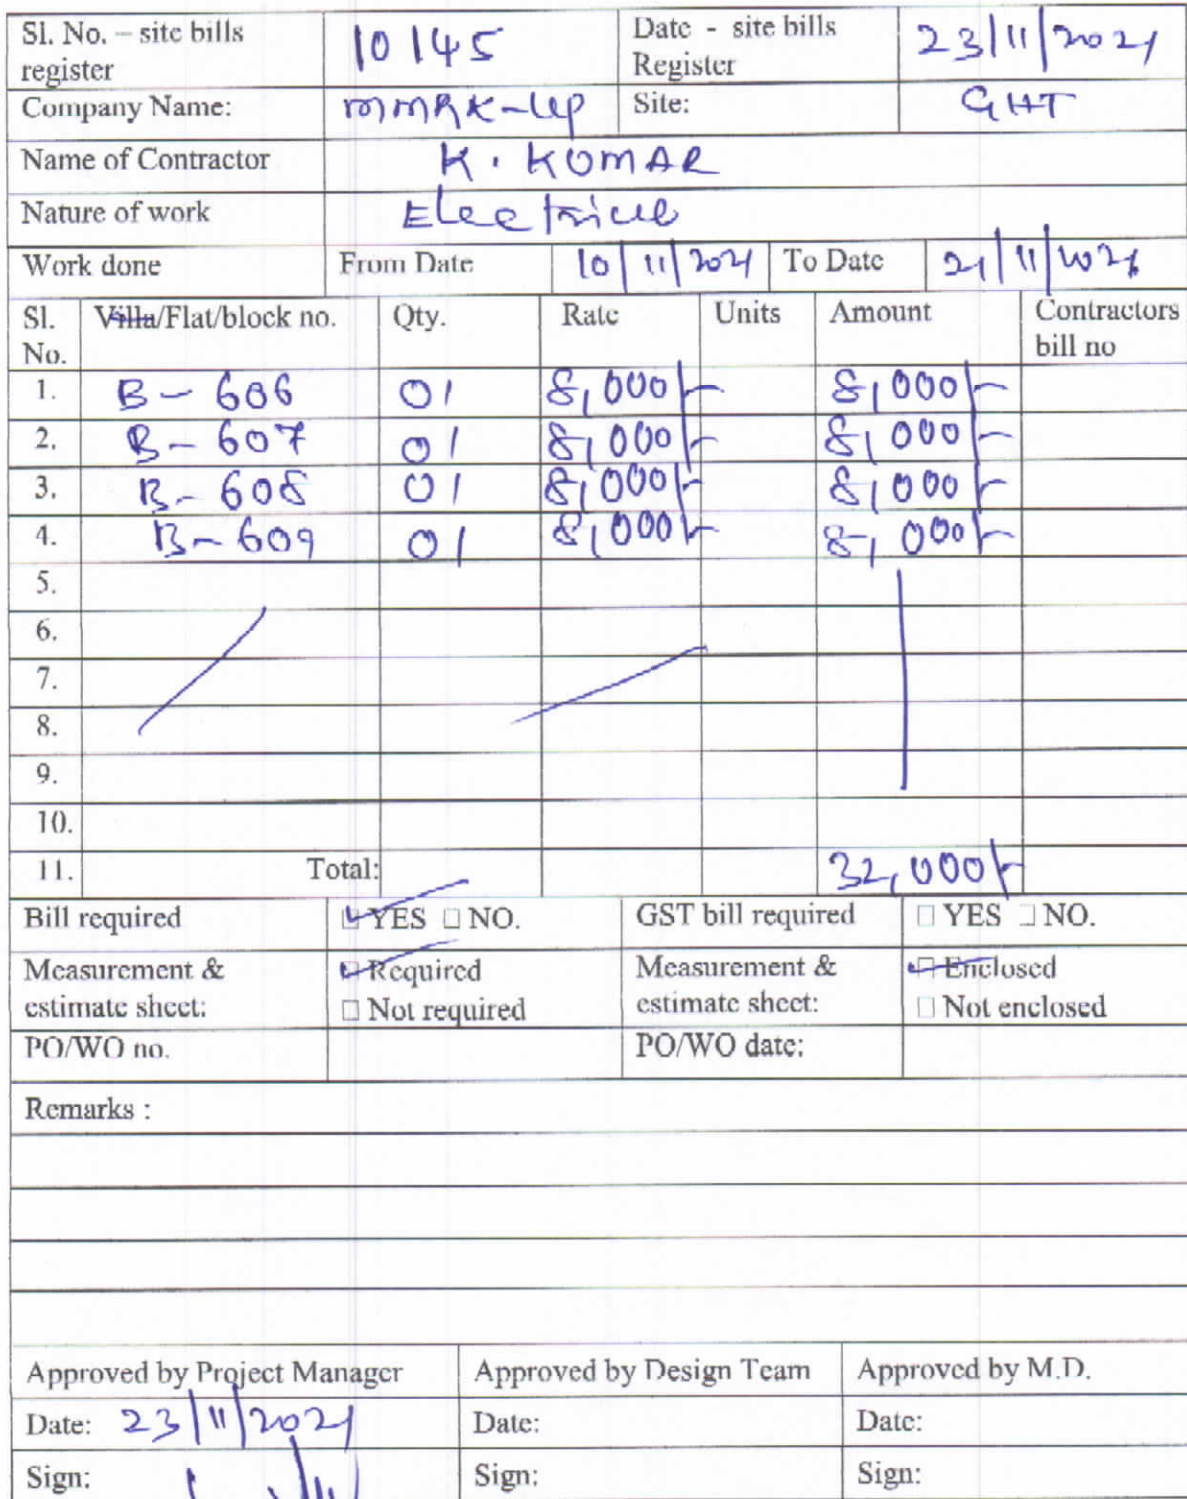 Sl. No. – site bills register 10145 Date - site bills Register 23/11/2021
Company Name: MMRK-LLP Site: GHT
Name of Contractor K. KUMAR
Nature of work Electrical
Work done From Date 10/11/2021 To Date 21/11/2021
Sl. No. Villa/Flat/block no. Qty. Rate Units Amount Contractors bill no
1. B-606 01 8,000/- 8,000/-
2. B-607 01 8,000/- 8,000/-
3. B-608 01 8,000/- 8,000/-
4. B-609 01 8,000/- 8,000/-
5.
6.
7.
8.
9.
10.
11. Total: 32,000/-
Bill required ☑ YES □ NO. GST bill required □ YES □ NO.
Measurement & estimate sheet: ☑ Required □ Not required Measurement & estimate sheet: ☑ Enclosed □ Not enclosed
PO/WO no. PO/WO date:
Remarks :
Approved by Project Manager Approved by Design Team Approved by M.D.
Date: 23/11/2021 Date: Date:
Sign: Sign: Sign: